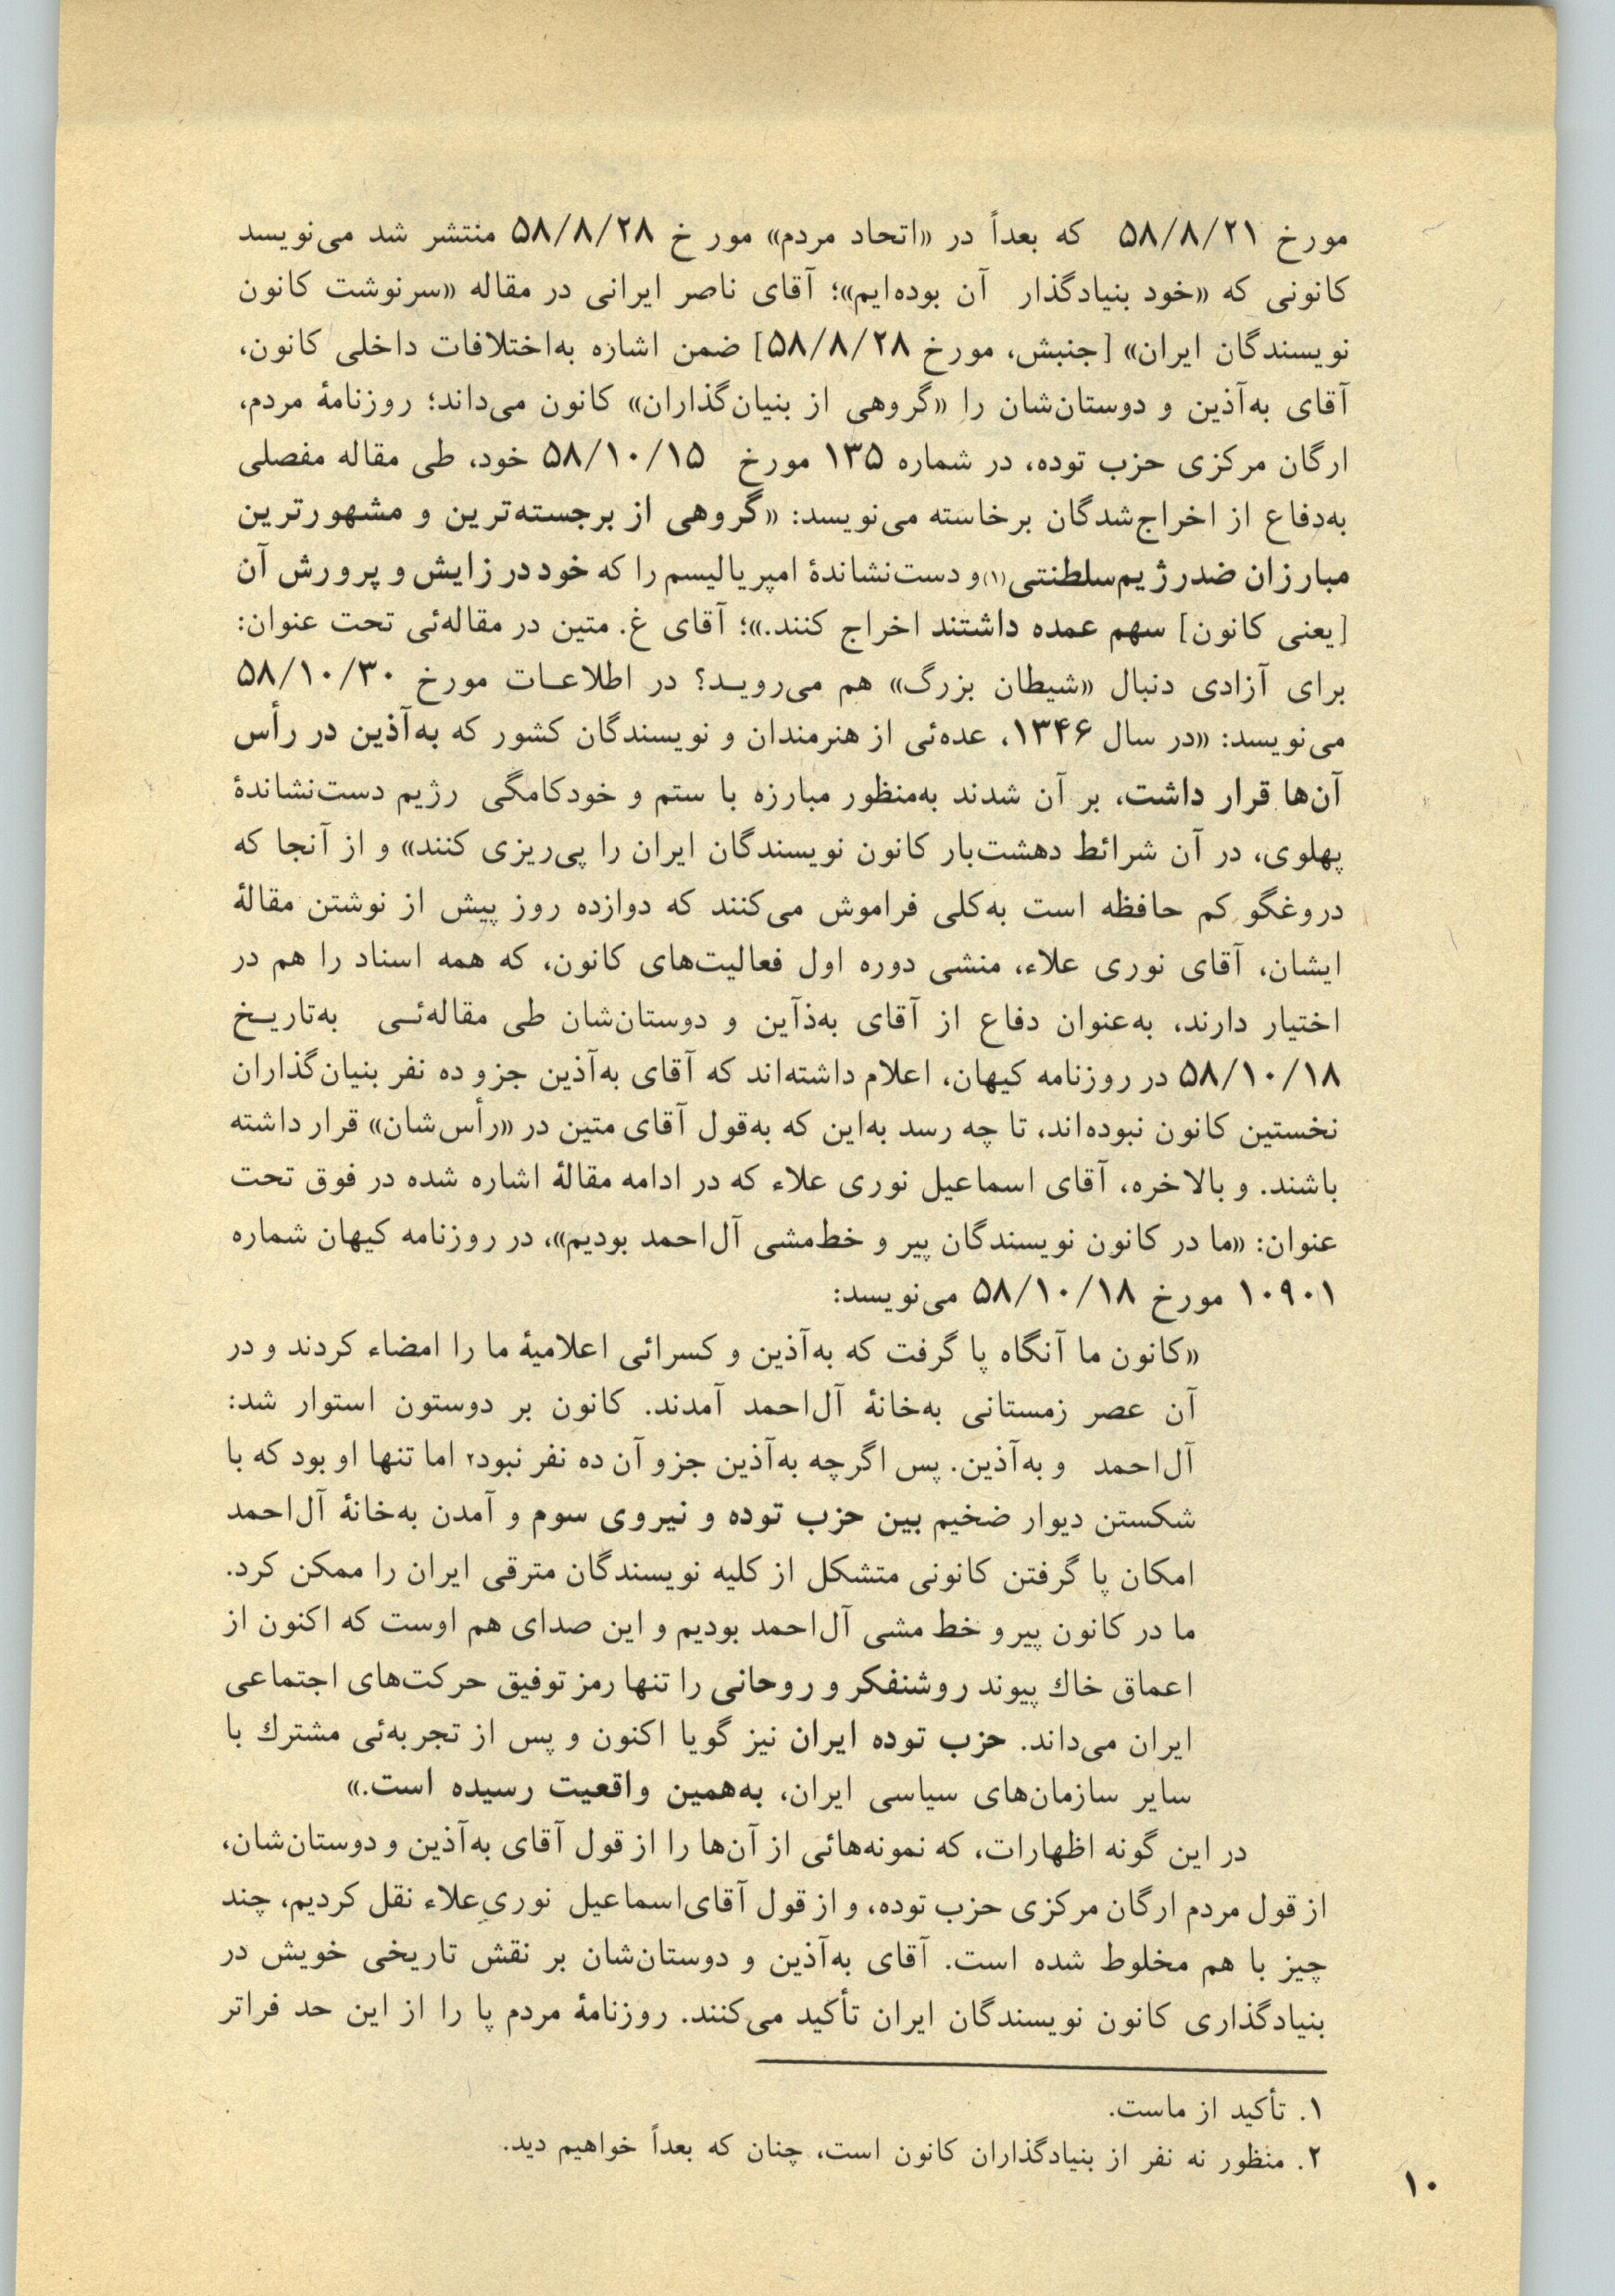 مورخ ۵۸/۸/۲۱ که بعداً در «اتحاد مردم» مور خ ۵۸/۸/۲۸ منتشر شد می‌نویسد
کانونی که «خود بنیادگذار آن بوده‌ایم»؛ آقای ناصر ایرانی در مقاله «سرنوشت کانون
نویسندگان ایران» [جنبش، مورخ ۵۸/۸/۲۸] ضمن اشاره به‌اختلافات داخلی کانون،
آقای به‌آذین و دوستان‌شان را «گروهی از بنیان‌گذاران» کانون می‌داند؛ روزنامهٔ مردم،
ارگان مرکزی حزب توده، در شماره ۱۳۵ مورخ ۵۸/۱۰/۱۵ خود، طی مقاله مفصلی
به‌دفاع از اخراج‌شدگان برخاسته می‌نویسد: «گروهی از برجسته‌ترین و مشهورترین
مبارزان ضدرژیم‌سلطنتی(۱)و دست‌نشاندهٔ امپریالیسم را که خود در زایش و پرورش آن
[یعنی کانون] سهم عمده داشتند اخراج کنند.»؛ آقای غ. متین در مقاله‌ئی تحت عنوان:
برای آزادی دنبال «شیطان بزرگ» هم می‌رویـد؟ در اطلاعـات مورخ ۵۸/۱۰/۳۰
می‌نویسد: «در سال ۱۳۴۶، عده‌ئی از هنرمندان و نویسندگان کشور که به‌آذین در رأس
آن‌ها قرار داشت، بر آن شدند به‌منظور مبارزه با ستم و خودکامگی رژیم دست‌نشاندهٔ
پهلوی، در آن شرائط دهشت‌بار کانون نویسندگان ایران را پی‌ریزی کنند» و از آنجا که
دروغگو کم حافظه است به‌کلی فراموش می‌کنند که دوازده روز پیش از نوشتن مقالهٔ
ایشان، آقای نوری علاء، منشی دوره اول فعالیت‌های کانون، که همه اسناد را هم در
اختیار دارند، به‌عنوان دفاع از آقای به‌ذآین و دوستان‌شان طی مقاله‌ئـی به‌تاریـخ
۵۸/۱۰/۱۸ در روزنامه کیهان، اعلام داشته‌اند که آقای به‌آذین جزو ده نفر بنیان‌گذاران
نخستین کانون نبوده‌اند، تا چه رسد به‌این که به‌قول آقای متین در «رأس‌شان» قرار داشته
باشند. و بالاخره، آقای اسماعیل نوری علاء که در ادامه مقالهٔ اشاره شده در فوق تحت
عنوان: «ما در کانون نویسندگان پیر و خط‌مشی آل‌احمد بودیم»، در روزنامه کیهان شماره
۱۰۹۰۱ مورخ ۵۸/۱۰/۱۸ می‌نویسد:
«کانون ما آنگاه پا گرفت که به‌آذین و کسرائی اعلامیهٔ ما را امضاء کردند و در
آن عصر زمستانی به‌خانهٔ آل‌احمد آمدند. کانون بر دوستون استوار شد:
آل‌احمد و به‌آذین. پس اگرچه به‌آذین جزو آن ده نفر نبود۲ اما تنها او بود که با
شکستن دیوار ضخیم بین حزب توده و نیروی سوم و آمدن به‌خانهٔ آل‌احمد
امکان پا گرفتن کانونی متشکل از کلیه نویسندگان مترقی ایران را ممکن کرد.
ما در کانون پیرو خط مشی آل‌احمد بودیم و این صدای هم اوست که اکنون از
اعماق خاك پیوند روشنفکر و روحانی را تنها رمز توفیق حرکت‌های اجتماعی
ایران می‌داند. حزب توده ایران نیز گویا اکنون و پس از تجربه‌ئی مشترك با
سایر سازمان‌های سیاسی ایران، به‌همین واقعیت رسیده است.»
در این گونه اظهارات، که نمونه‌هائی از آن‌ها را از قول آقای به‌آذین و دوستان‌شان،
از قول مردم ارگان مرکزی حزب توده، و از قول آقای‌اسماعیل نوری‌علاء نقل کردیم، چند
چیز با هم مخلوط شده است. آقای به‌آذین و دوستان‌شان بر نقش تاریخی خویش در
بنیادگذاری کانون نویسندگان ایران تأکید می‌کنند. روزنامهٔ مردم پا را از این حد فراتر
۱. تأکید از ماست.
۲. منظور نه نفر از بنیادگذاران کانون است، چنان که بعداً خواهیم دید.
۱۰